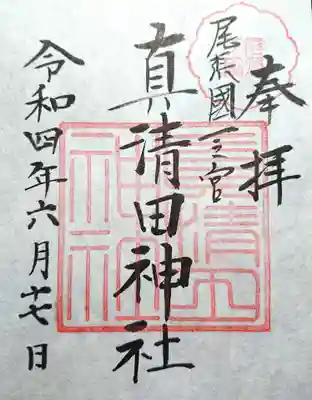 奉拝
尾張國一之宮
真清田神社
令和四年六月十七日